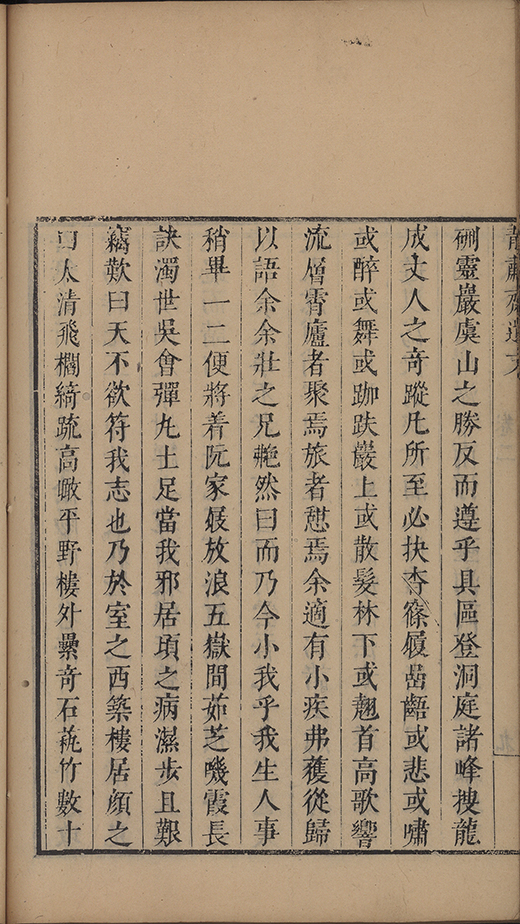 遺文
硎靈巖虞山之勝反而遵乎具區登洞庭諸峰搜龍
成丈人之奇蹤凡所至必抉篠履嵒齬或悲或嘯
或醉或舞或跏趺巖上或散髮林下或翹首高歌響
流層霄廬者聚焉旅者憩焉余適有小疾弗獲從歸
以語余余壯之兄艴然曰而乃今小我乎我生人事
稍畢一二便將着阮家屐放浪五嶽間茹芝嘰霞長
訣濁世吳會彈丸士足當我邪居頃之病濕步且艱
竊歎曰天不欲符我志也乃於室之西築樓居顏之
曰太清飛櫊綺疏高瞰平野樓外纍奇石蓺竹數十